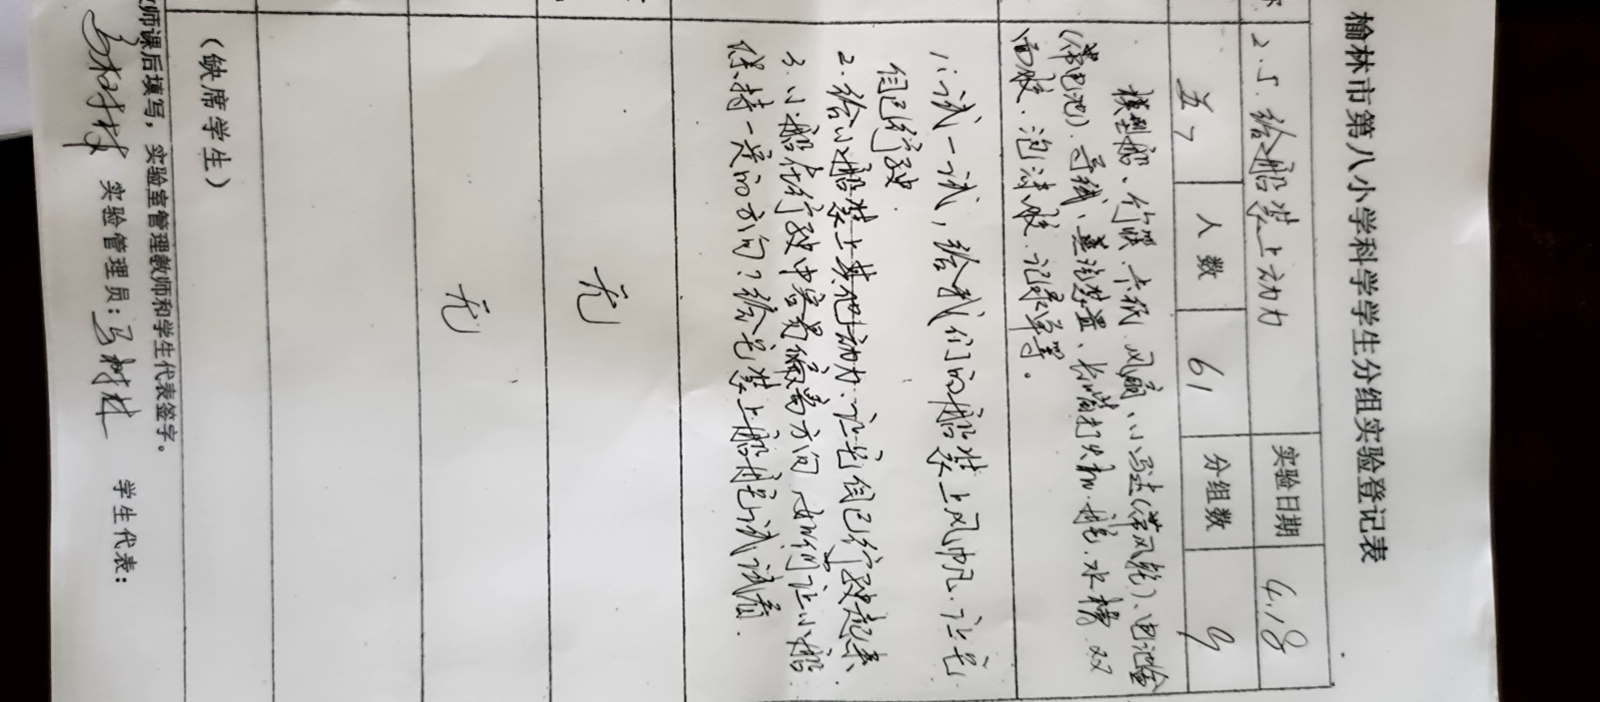 榆林市第八小学科学学生分组实验登记表
2.5 给船装上动力 实验日期 4.18
五7 人数 61 分组数 9
模型船、竹筷、卡纸、风扇、小马达(带风轮)、电池盒
(带电池)、导线、蒸汽装置、长嘴打火机、蜡、水槽、双
面胶、泡沫胶、记录单等。
1.试一试,给我们的船装上风帆.让它
自己行驶.
2.给小船装上其他动力.让它自己行驶起来
3.小船在行驶中容易偏离方向,如何让小船
保持一定的方向?给它装上船舵试试看.
无
无
(缺席学生)
师课后填写,实验室管理教师和学生代表签字。
实验管理员:马树林 学生代表: